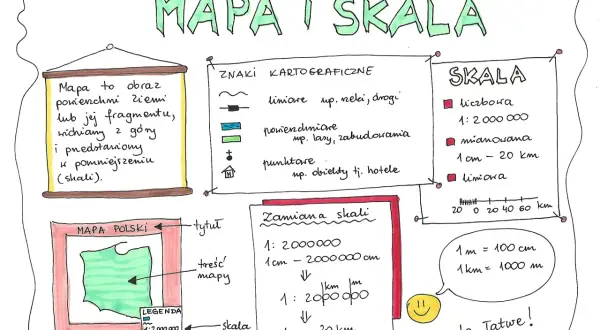 MAPA I SKALA
Mapa to obraz
powierzchni Ziemi
lub jej fragmentu,
widziany z góry
i przedstawiony
w pomniejszeniu
(skali).
ZNAKI KARTOGRAFICZNE
liniowe np. rzeki, drogi
powierzchniowe
np. lasy, zabudowania
punktowe
np. obiekty tj. hotele
H
SKALA
liczbowa
1: 2 000 000
mianowana
1 cm – 20 km
liniowa
20 0 20 40 60 km
MAPA POLSKI
tytuł
treść
mapy
LEGENDA
1:2000000
skala
Zamiana skali
1: 2000000
1cm – 2000000cm
km m
1 : 2000000
20 km
1m = 100 cm
1km = 1000 m
Łatwe!